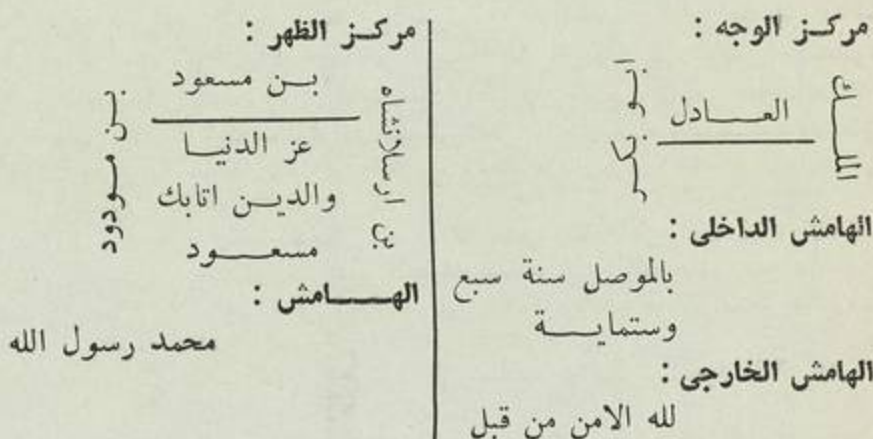 مركز الوجه :
الملك
العادل
ابو بكر
الهامش الداخلى :
بالموصل سنة سبع
وستماية
الهامش الخارجى :
لله الامن من قبل
مركز الظهر :
بن ارسلانشاه
بن مسعود
عز الدنيا
والدين اتابك
مسعود
بن مودود
الهامش :
محمد رسول الله